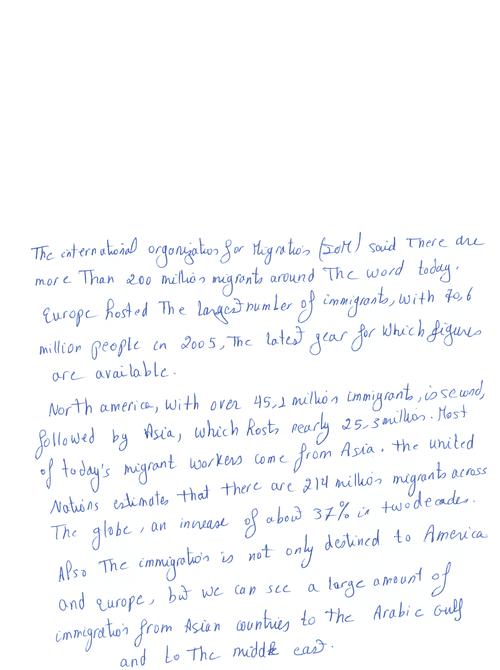 The international organization for Migration (IOM) said There are
more Than 200 million migrants around The word today.
Europe hosted The largest number of immigrants, with 70,6
million people in 2005, The latest year for which figures
are available.
North america, with over 45,1 million immigrants, is second,
followed by Asia, which hosts nearly 25,3 million. Most
of today's migrant workers come from Asia. the united
Nations estimates that there are 214 million migrants across
The globe, an increase of about 37% in two decades.
Also The immigration is not only destined to America
and europe, but we can see a large amount of
immigration from Asian countries to the Arabic Gulf
and to The middle east.